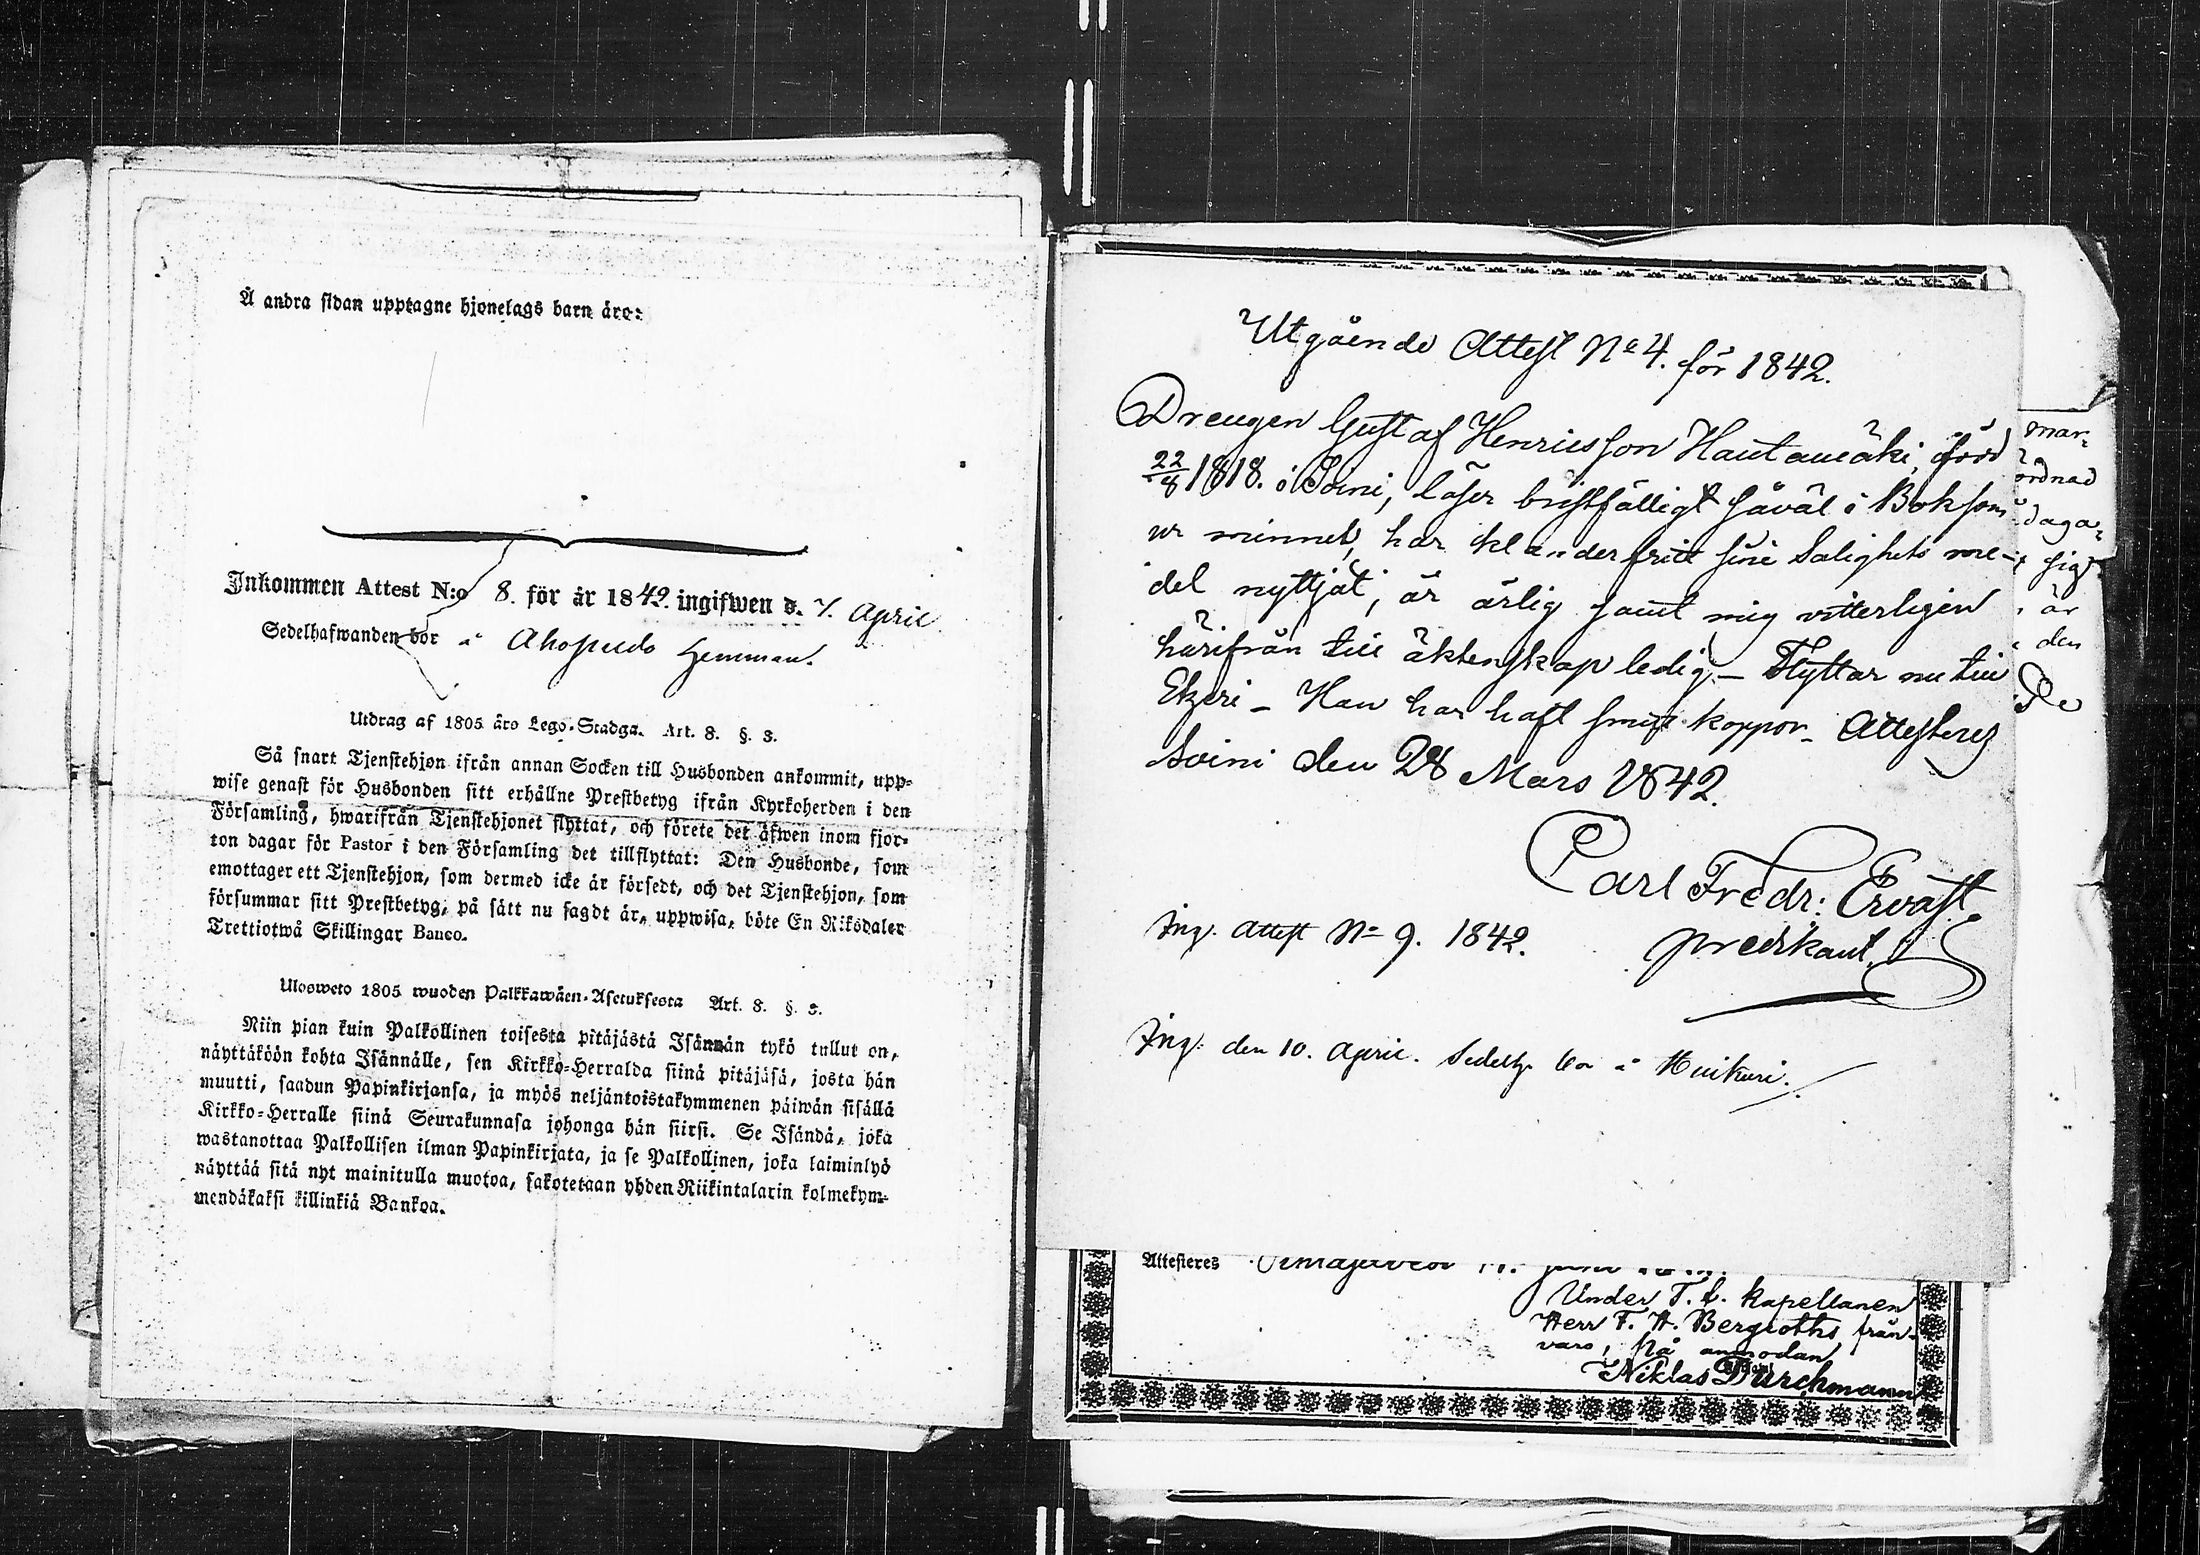 Å andra sidan upptagne hjonelags barn äro:
Inkommen Attest N:o 8. för år 1842. ingifwen d. 7. April
Sedelhafwanden bor å Ahopudo Hemman.
Utdrag af 1805 års Lego-Stadga. Art. 8. §. 3.
Så snart Tjenstehjon ifrån annan Socken till Husbonden ankommit, upp-
wise genast för Husbonden sitt erhållne Prestbetyg ifrån Kyrkoherden i den
Församling, hwarifrån Tjenstehjonet flyttat, och förete det äfwen inom fjor-
ton dagar för Pastor i den Församling det tillflyttat: Den Husbonde, som
emottager ett Tjenstehjon, som dermed icke är försedt, och det Tjenstehjon, som
försummar sitt Prestbetyg, på sätt nu sagdt är, uppwisa, böte En Riksdaler
Trettiotwå Skillingar Banco.
Ulosweto 1805 wuoden Palkkawäen-Asetuksesta Art. 8. §. 3.
Niin pian kuin Palkollinen toisesta pitäjästä Isännän tykö tullut on,
näyttäköön kohta Isännälle, sen Kirkko-Herralda siinä pitäjäsä, josta hän
muutti, saadun Papinkirjansa, ja myös neljäntoistakymmenen päiwän sisällä
Kirkko-Herralle siinä Seurakunnasa johonga hän siirsi. Se Isändä, joka
wastanottaa Palkollisen ilman Papinkirjata, ja se Palkollinen, joka laiminlyö
näyttää sitä nyt mainitulla muotoa, sakotetaan yhden Riikintalarin kolmekym-
mendäkaksi killinkiä Bankoa.
Utgående Attest No 4. för 1842.
Drengen Gustaf Henricsson Hautamäki, född
22/8 1818. i Soini, läser bristfälligt såväl i Bok som
ur minnet, har klanderfritt sine Salighets me-
del nyttjat, är ärlig samt mig vitterligen
härifrån till äktenskap ledig – Flyttar nu till
Etzeri – Han har haft smitt koppor – Attesterez
Soini den 28 Mars 1842.
Carl Fredr: Ervast
predikant.
Ing. Attest No 9. 1842.
Ing. den 10. April. Sedelh. bor å
mar-
ordnad
daga-
sig
är
den
Attesteres
Under T. f. Kapellanen
Herr F. H. Bergroths från-
varo, på anmodan
Niklas Durchman